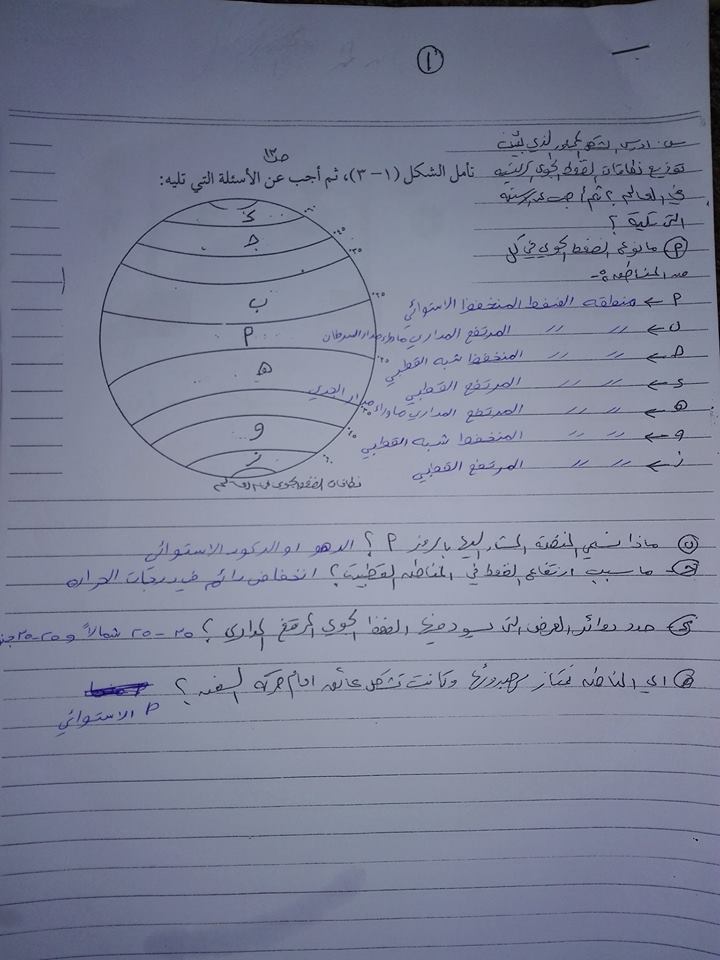 ١
ص١٣
س: ادرس الشكل المجاور الذي يبين
توزيع نطاقات الضغط الجوي الرئيسية
في العالم ؟ ثم أجب عن الاسئلة
التي تليه ؟
تأمل الشكل (١ – ٣)، ثم أجب عن الأسئلة التي تليه:
أ ما نوع الضغط الجوي في كل
من المناطق :-
أ ← منطقه الضغط المنخفظ الاستوائي
ب ← // // المرتفع المداري ماوراء مدار السرطان
ج ← // // المنخفظ شبه القطبي
د ← // // المرتفع القطبي
هـ ← // // المرتفع المداري ماوراء مدار الجدي
و ← // // المنخفظ شبه القطبي
ز ← // // المرتفع القطبي
د
ج
ب
أ
هـ
و
ز
٦٠°
٤٥°
٣٥°
٢٥°
٢٥°
٣٥°
٤٥°
٦٠°
نطاقات الضغط الجوي
ب ماذا تسمى المنطقة المشار اليها بالرمز أ ؟ الرهو او الركود الاستوائي
ج ما سبب ارتفاع الضغط في المناطق القطبية ؟ انخفاض دائم في درجات الحراره
د حدد دوائر العرض التي يسود فيها الضغط الجوي المرتفع المداري ؟ ٢٥ - ٣٥ شمالاً و ٢٥-٣٥ جنو
هـ اي المناطق تمتاز بهدوئها وكانت تشكل عائق امام حركة السفن ؟
أ الاستوائي